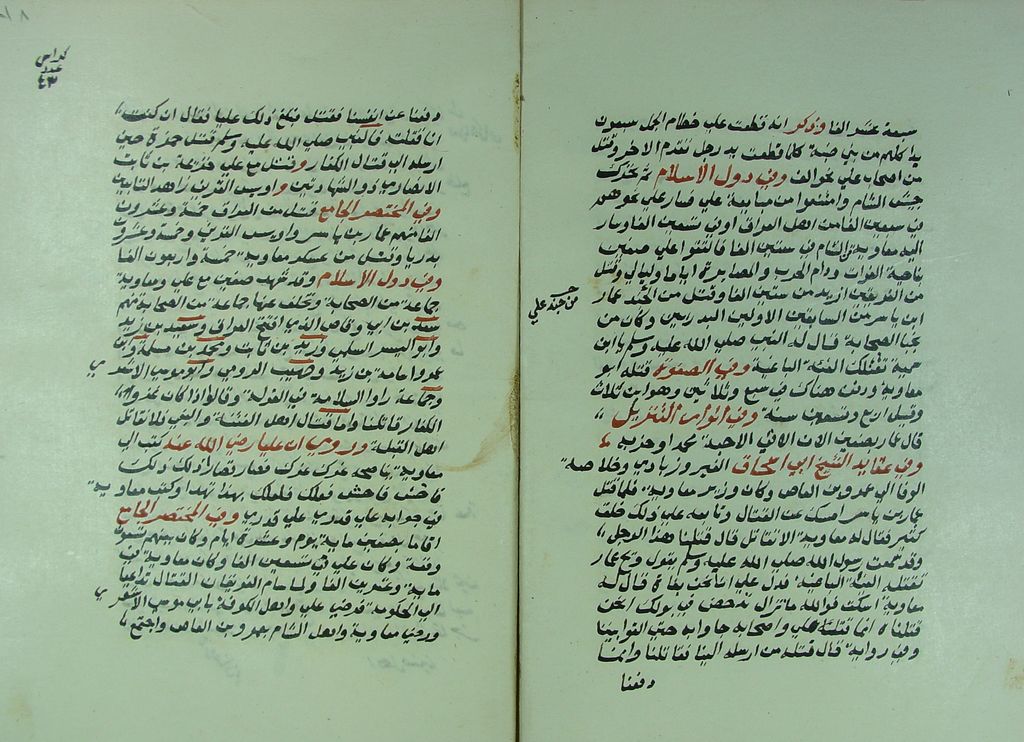 سبعة عشر الفا وذكر انه قطعت على خطام الجمل سبعون
يدا كلهم من بني ضبة كلما قطعت يد رجل تقدم الاخر وقتل
من اصحاب علي نحو الف وفي دول الاسلام ثم تحركت
جيش الشام وامتنعوا من مبايعة علي فسار علي نحوهم
في سبعين الفا من اهل العراق او في تسعين الفا وسار
اليه معاوية من الشام في ستين الفا فالتقوا على صفين
بناحية الفرات ودام الحرب والمصابرة اياما وليالي وقتل
من الفريقين ازيد من ستين الفا وقتل من الجند عمار
من جند علي
ابن ياسر من السابقين الاولين البدريين وكان من
نجبا الصحابة قال له النبي صلى الله عليه وسلم يا ابن
سمية تقتلك الفئة الباغية وفي الصفوة قتله ابو
معاوية ودفن هناك في سبع وثلاثين وهو ابن ثلاث
وقيل اربع وتسعين سنة وفي انوار التنزيل
قال عمار بصفين الان الاقي الاحبة محمدا وحزبه
وفي عقايد الشيخ ابي اسحاق الفيروزبادي وخلاصة
الوفا ان عمرو بن العاص وكان وزير معاوية فلما قتل
عمار بن ياسر امسك عن القتال وتابعه على ذلك خلق
كثير فقال له معاوية لم لا تقاتل قال قتلنا هذا الرجل
وقد سمعت رسول الله صلى الله عليه وسلم يقول ويح عمار
تقتله الفئة الباغية فدل على انا نحن بغاة قال له
معاوية اسكت فوالله ما تزال تدحض في بولك انحن
قتلناه انما قتله علي واصحابه جاوا به حتى القوا بيننا
وفي رواية قال قتله من ارسله الينا يقاتلنا وانما
دفعنا
كراس
عدد
٤٣
دفعنا عن انفسنا فقتل فبلغ ذلك عليا فقال ان كنت
انا قتلته فالنبي صلى الله عليه وسلم قتل حمزة حين
ارسله الى قتال الكفار وقتل مع علي خزيمة بن ثابت
الانصاري ذو الشهادتين واويس القرني زاهد التابعين
وفي المختصر الجامع قتل من العراق خمسة وعشرون
الفا منهم عمار بن ياسر واويس القرني وخمسة وعشرون
بدريا وقتل من عسكر معاوية خمسة واربعون الفا
وفي دول الاسلام وقد شهد صفين مع علي ومعاوية
جماعة من الصحابة وتخلف عنها جماعة من الصحابة منهم
سعد بن ابي وقاص الذي افتتح العراق وسعيد بن زيد
وابو اليسر السلمي وزيد بن ثابت ومحمد بن مسلمة وابن
عمر واسامة بن زيد وصهيب الرومي وابو موسى الاشعري
وجماعة راوا السلامة في العزلة وقالوا اذا كان غزو
الكفار قاتلنا واما قتال اهل الفتنة والبغي فلا نقاتل
اهل القبلة وروي ان عليا رضي الله عنه كتب الى
معاوية غرك عزك فصار قصار ذلك ذلك
فاخش فاحش فعلك فعلك بهذا تهدا وكتب معاوية
في جوابه على قدري غلى قدري وفي المختصر الجامع
اقاما بصفين ماية يوم وعشرة ايام وكان بينهم تسعون
وقعة وكان علي في تسعين الفا وكان معاوية في
ماية وعشرين الفا ولما سام الفريقان القتال تداعيا
الى الحكومة فرضي علي واهل الكوفة بابي موسى الاشعري
ورضي معاوية واهل الشام بعمرو بن العاص واجتمع